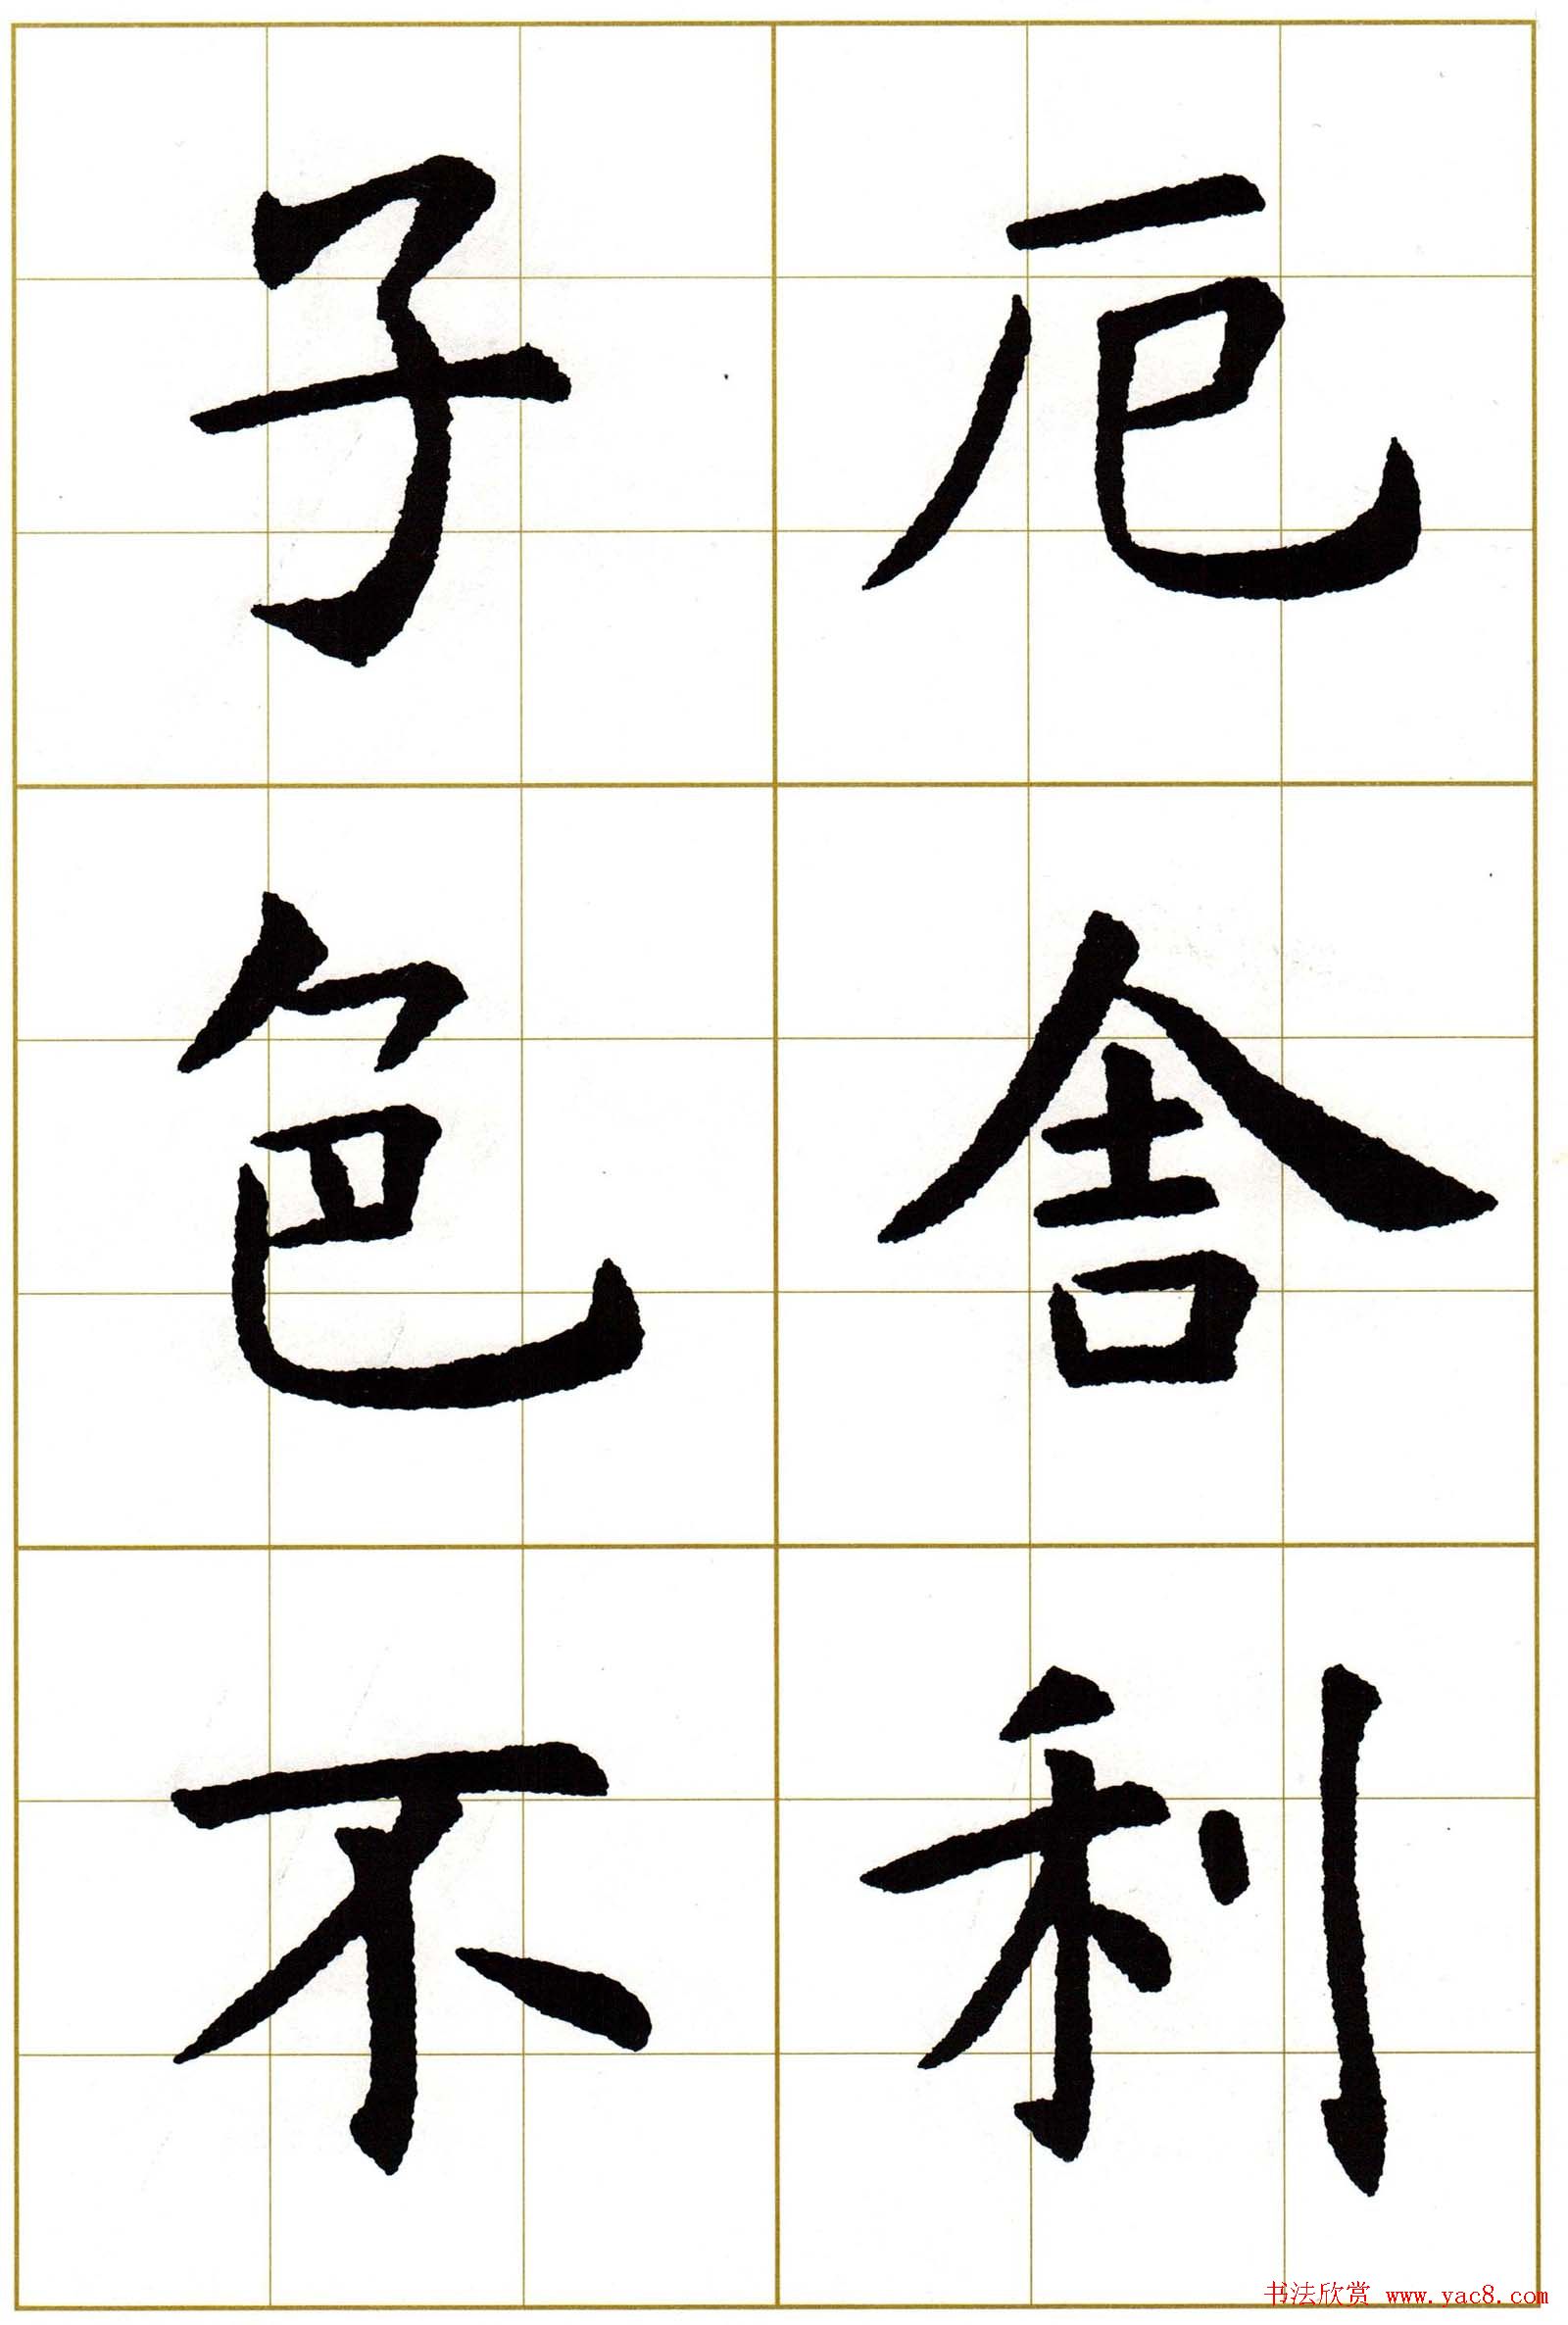 厄舍利
子色不
书法欣赏 www.yac8.com